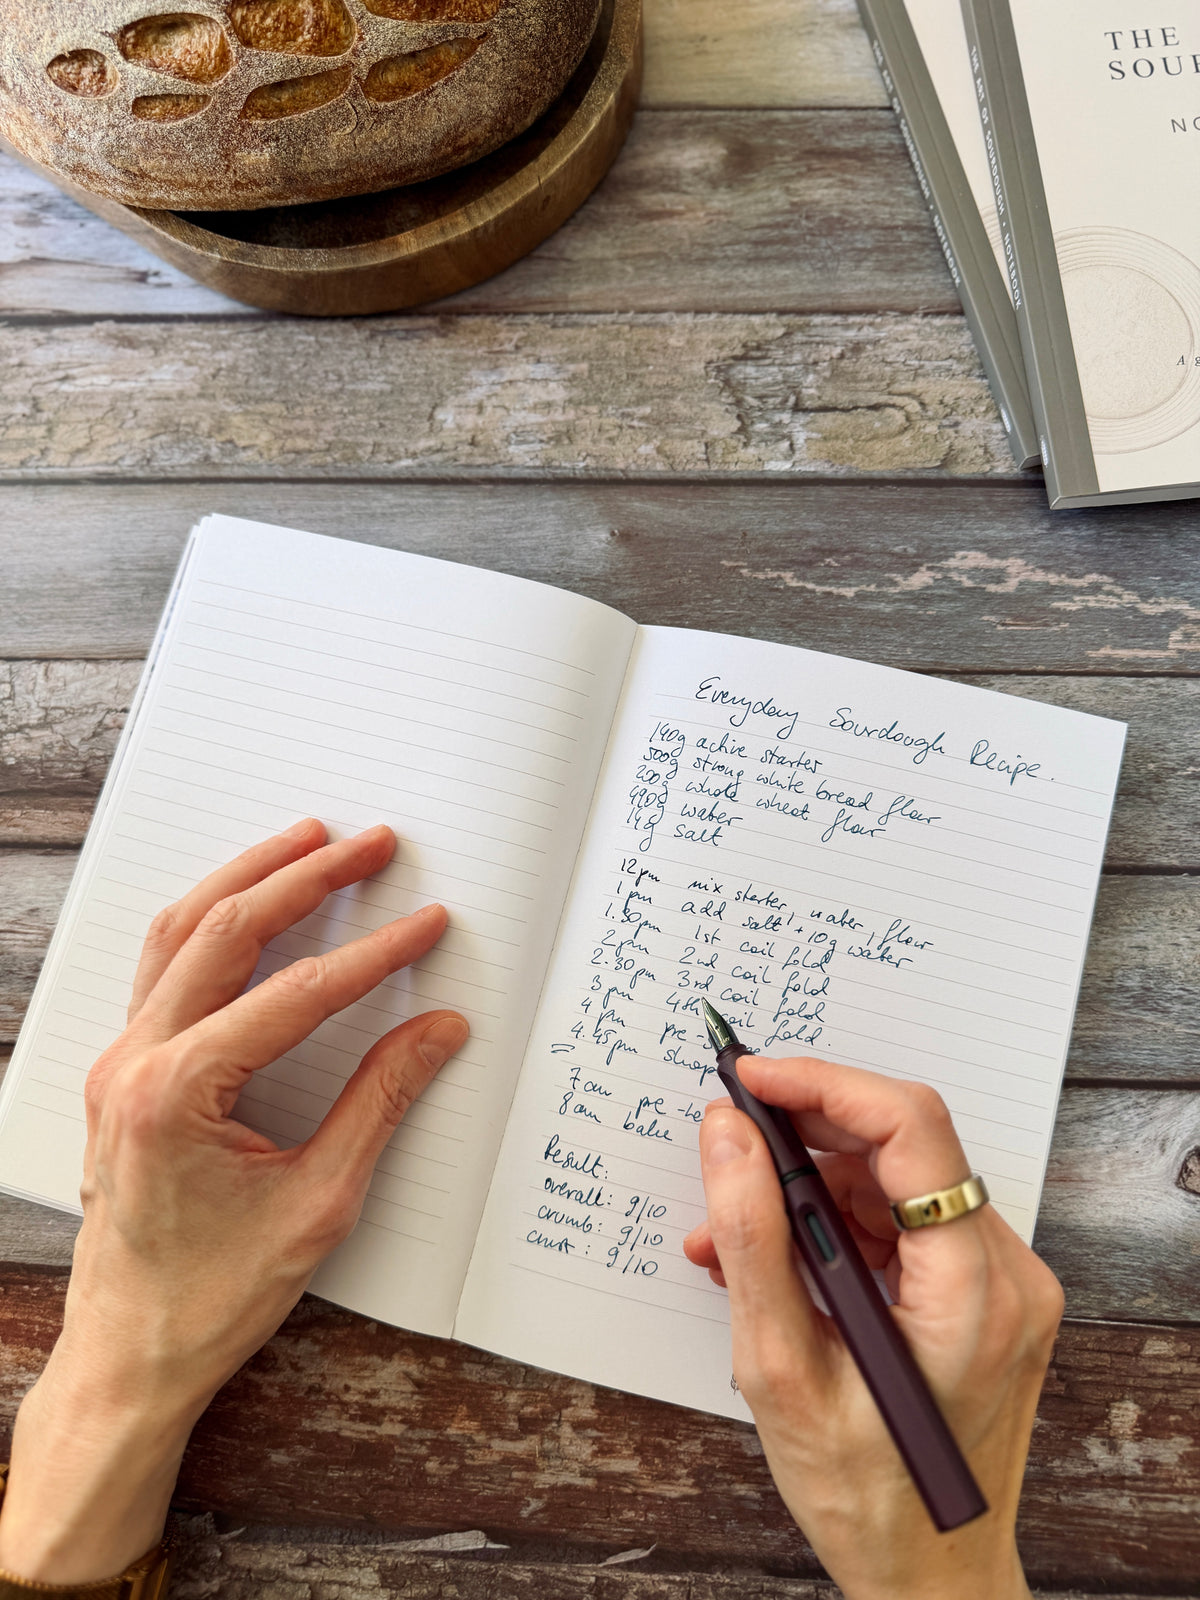 THE
SOUR
NO
A g
THE ART OF SOURDOUGH • NOTEBOOK
THE ART OF SOURDOUGH • NOTEBOOK
Everyday Sourdough Recipe.
140g active starter
500g strong white bread flour
200g whole wheat flour
490g water
14g salt
12pm mix starter, water, flour
1pm add salt + 10g water
1.30pm 1st coil fold
2pm 2nd coil fold
2.30pm 3rd coil fold
3pm 4th coil fold.
4pm pre-
4.45pm shap
7am pre-he
8am bake
Result:
overall: 9/10
crumb: 9/10
crust: 9/10